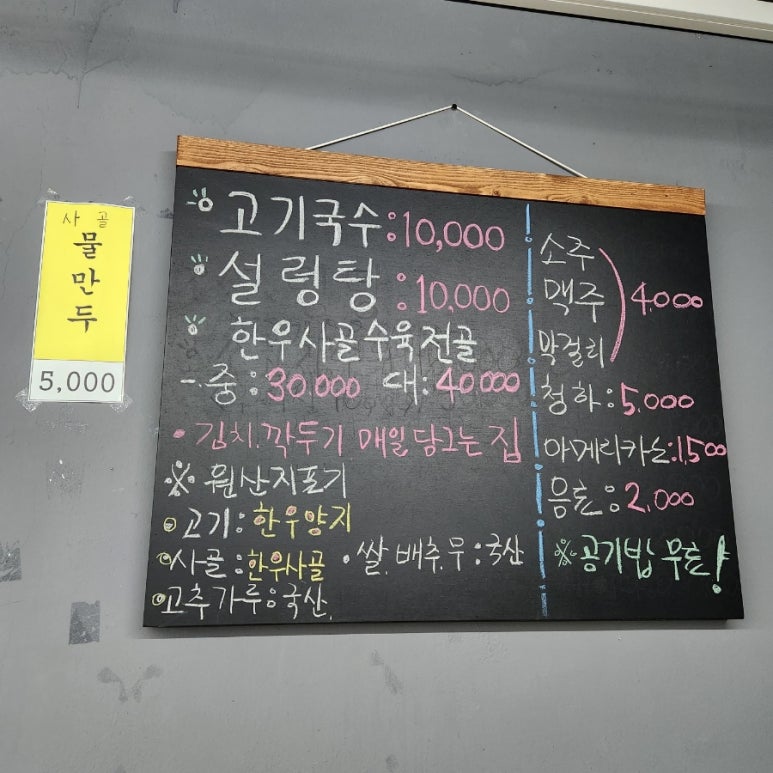 사골
물만두
5,000
고기국수:10,000
설렁탕:10,000
한우사골수육전골
-중:30.000 대:40000
• 김치.깍두기 매일 담그는 집
※ 원산지표기
고기:한우양지
사골:한우사골 •쌀.배추.무:국산
고추가루:국산.
소주
맥주
막걸리
4.000
청하:5.000
아메리카노:1,500
음료:2,000
※공기밥 무료!